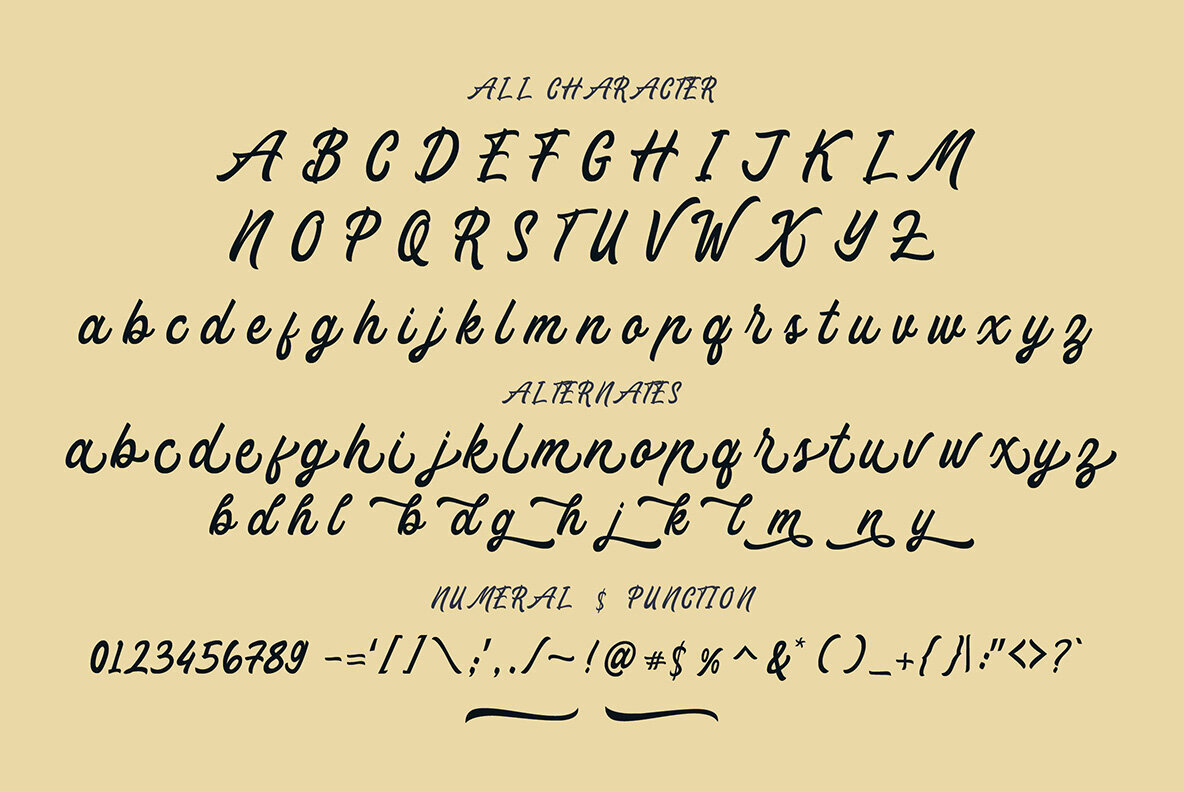 ALL CHARACTER
A B C D E F G H I J K L M
N O P Q R S T U V W X Y Z
a b c d e f g h i j k l m n o p q r s t u v w x y z
ALTERNATES
a b c d e f g h i j k l m n o p q r s t u v w x y z
b d h l b d g h j k l m n y
NUMERAL $ PUNCTION
0123456789 -=‘[]\;’,./~!@#$%^&*()_+{}|:"<>?`